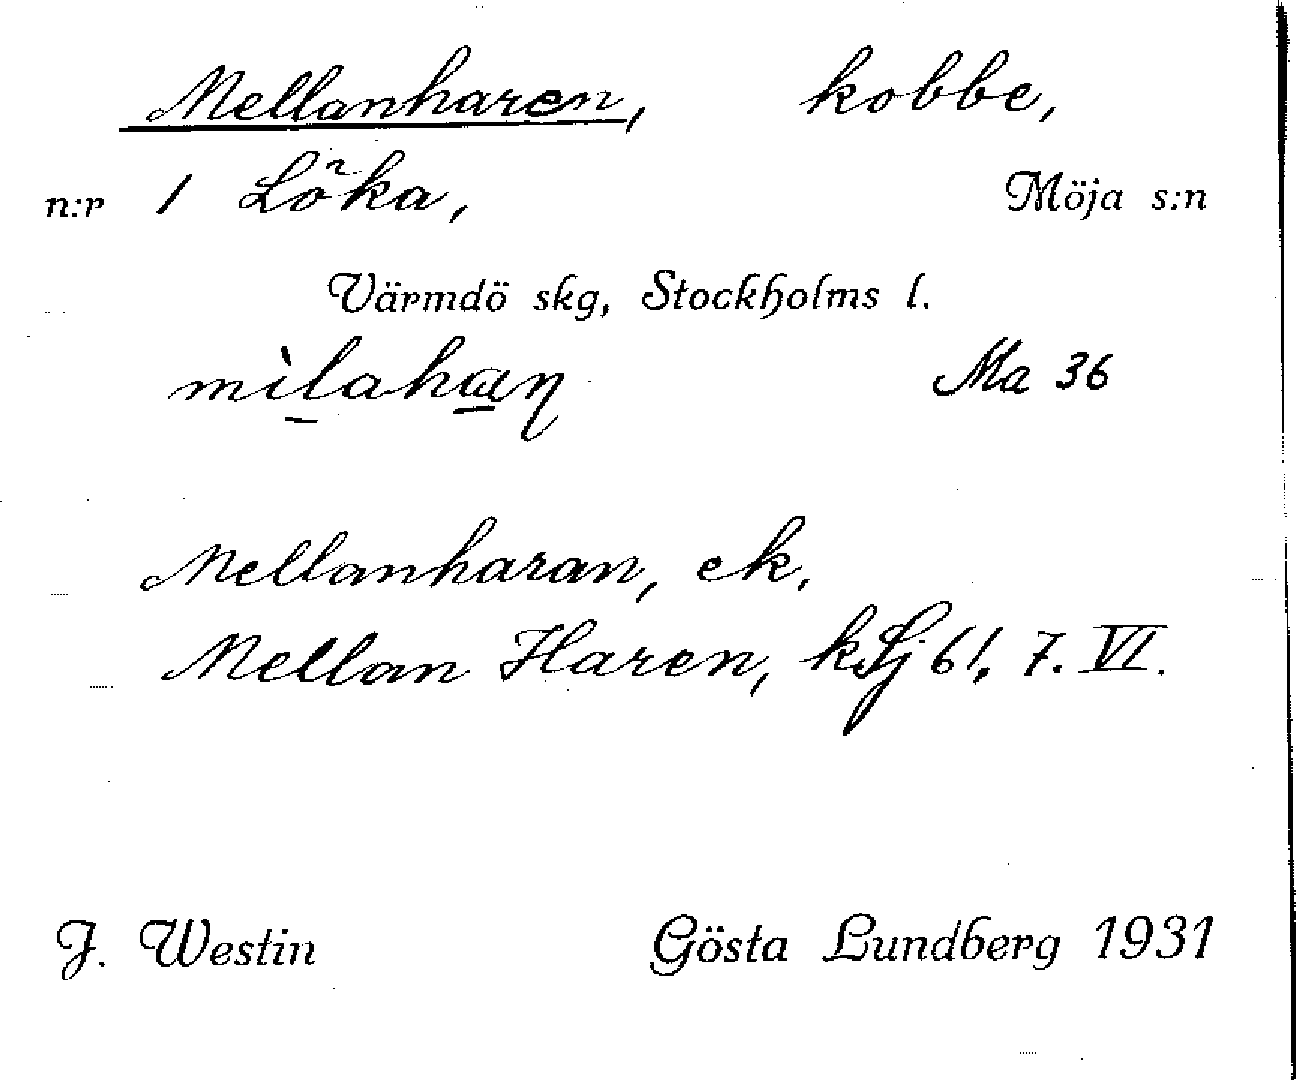 Mellanharen, kobbe,
n:r 1 Löka, Möja s:n
Värmdö skg, Stockholms l.
Ma 36
Mellanharan, ek.
Mellan Haren, kSj 61. 7. VI.
J. Westin Gösta Lundberg 1931